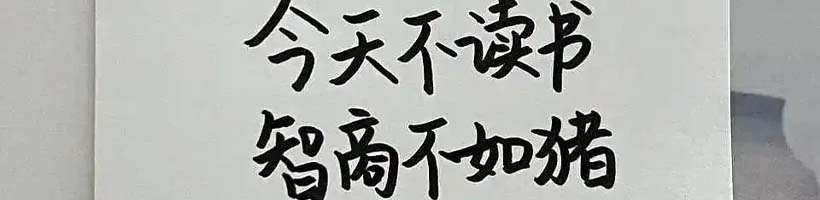 今天不读书
智商不如猪